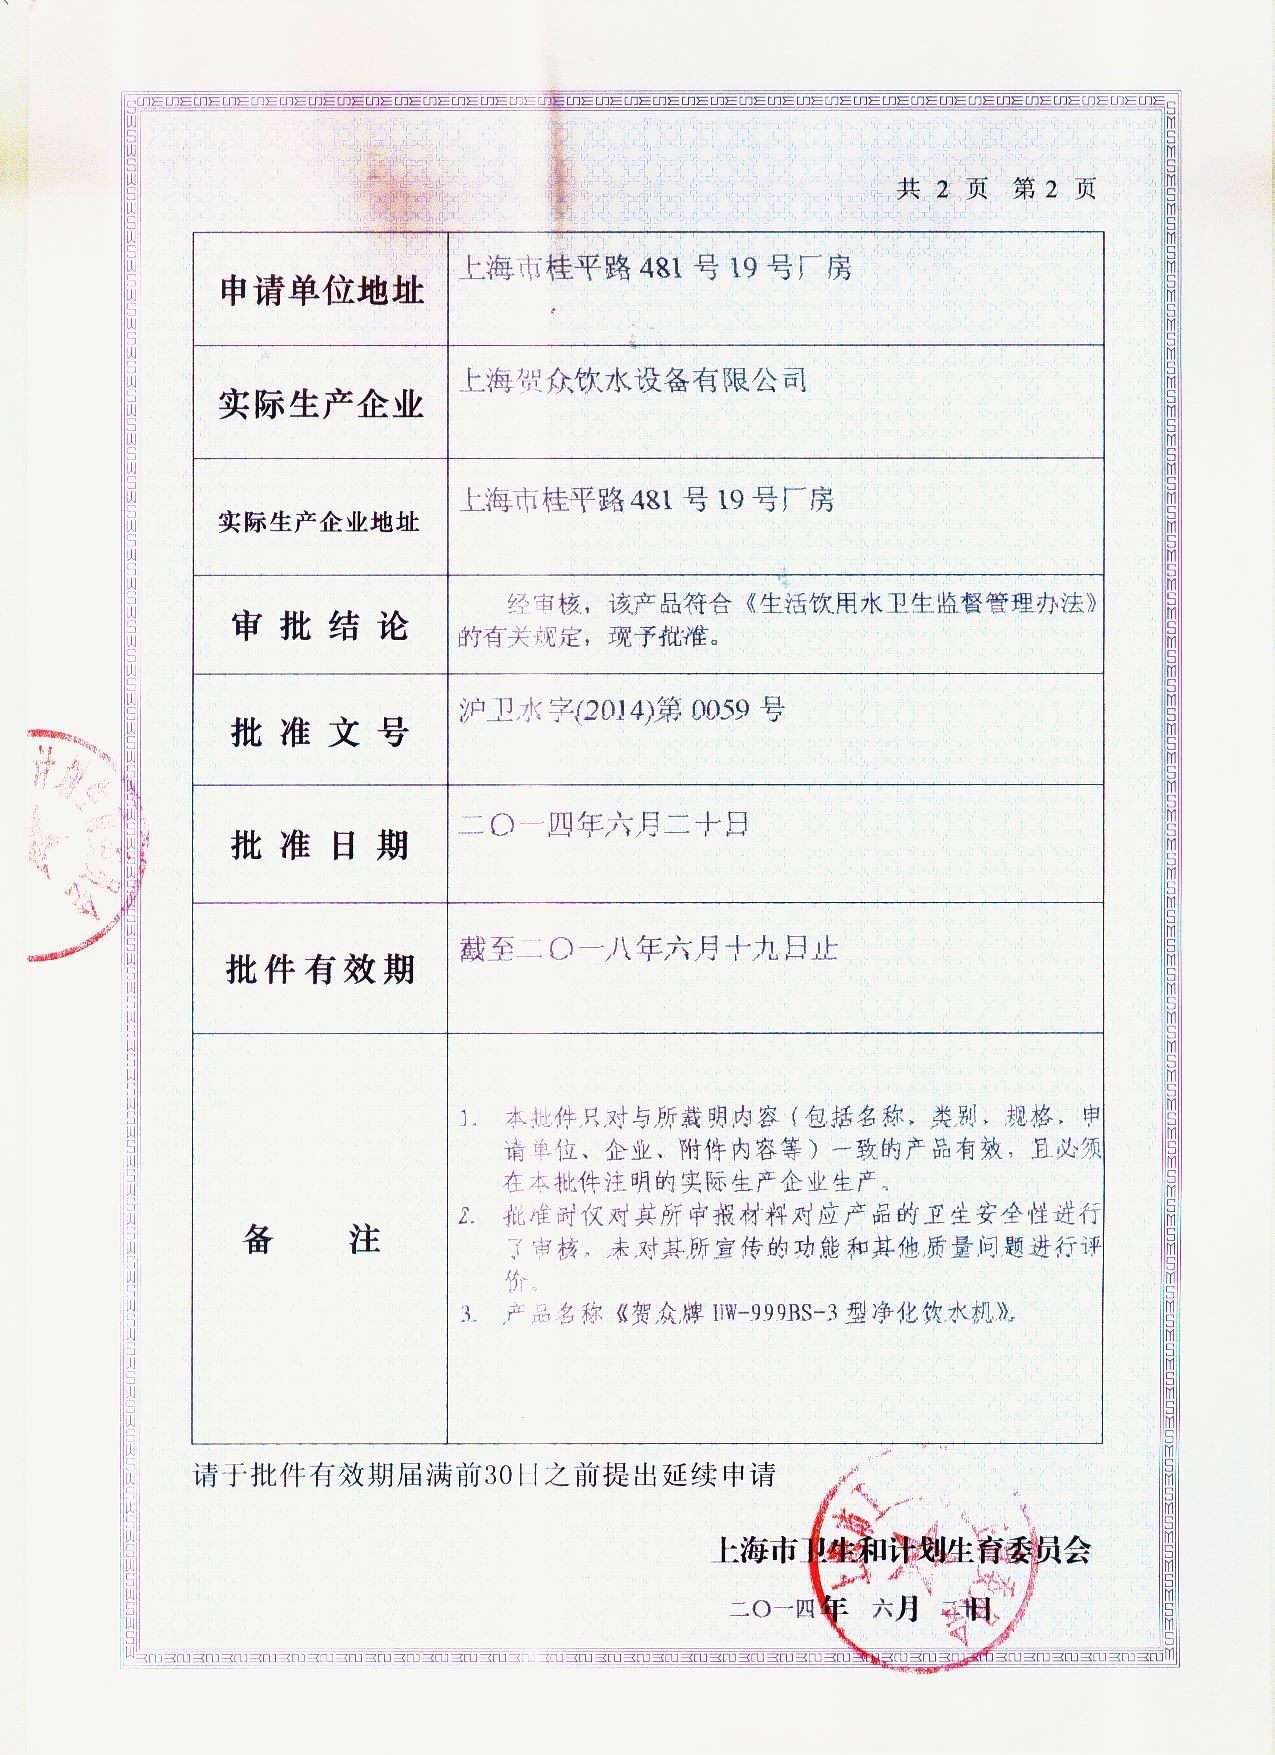 共 2 页 第 2 页
申请单位地址
上海市桂平路 481 号 19 号厂房
实际生产企业
上海贺众饮水设备有限公司
实际生产企业地址
上海市桂平路 481 号 19 号厂房
审批结论
经审核，该产品符合《生活饮用水卫生监督管理办法》
的有关规定，现予批准。
批准文号
沪卫水字(2014)第 0059 号
批准日期
二〇一四年六月二十日
批件有效期
截至二〇一八年六月十九日止
备 注
1. 本批件只对与所载明内容（包括名称、类别、规格、申
请单位、企业、附件内容等）一致的产品有效，且必须
在本批件注明的实际生产企业生产。
2. 批准时仅对其所申报材料对应产品的卫生安全性进行
了审核，未对其所宣传的功能和其他质量问题进行评
价。
3. 产品名称《贺众牌 HW-999BS-3 型净化饮水机》。
请于批件有效期届满前30日之前提出延续申请
上海市卫生和计划生育委员会
二〇一四年 六月 二十日